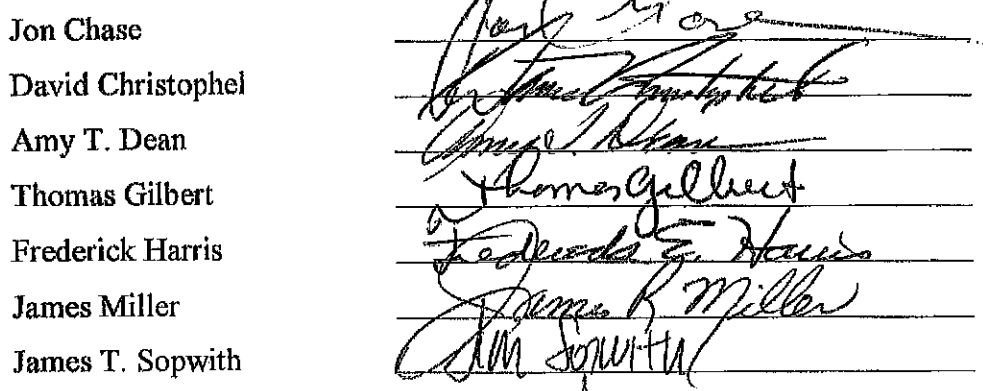 Jon Chase
David Christophel
Amy T. Dean Amy T. Dean
Thomas Gilbert Thomas Gilbert
Frederick Harris Frederick E. Harris
James Miller James R Miller
James T. Sopwith Jim Sopwith